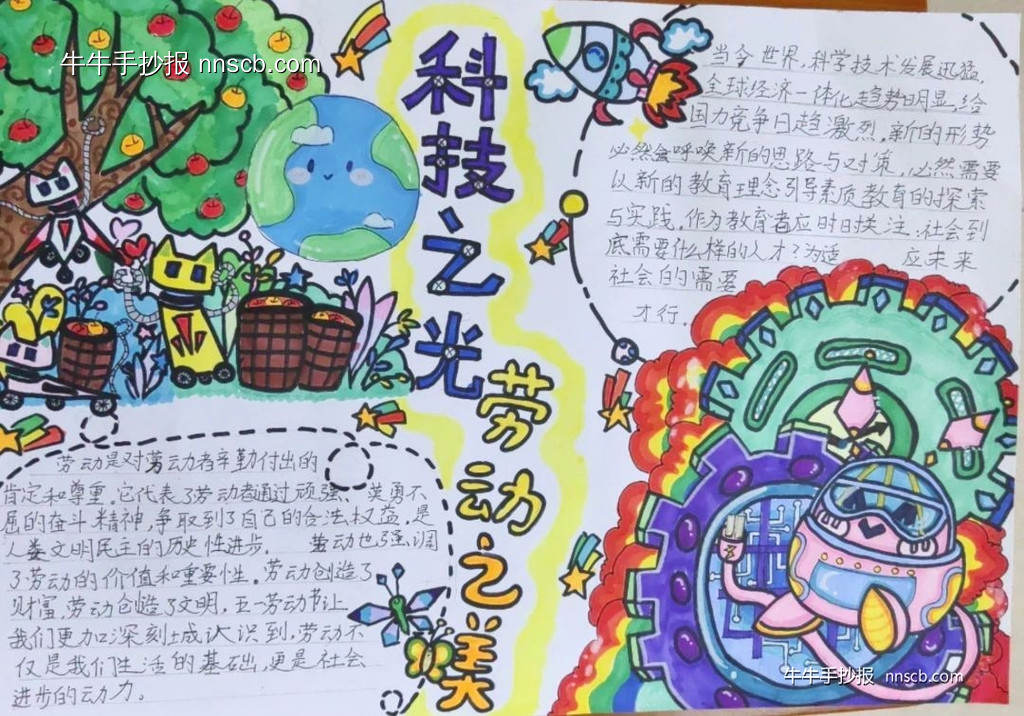 牛牛手抄报 nnscb.com
科技之光
劳动之美
当今世界,科学技术发展迅猛,
全球经济一体化趋势明显,给
国力竞争日趋激烈,新的形势
必然会呼唤新的思路与对策,必然需要
以新的教育理念引导素质教育的探索
与实践,作为教育者应时时关注:社会到
底需要什么样的人才?为适 应未来
社会的需要
才行.
劳动是对劳动者辛勤付出的
肯定和尊重.它代表了劳动者通过顽强、英勇不
屈的奋斗精神,争取到了自己的合法权益,是
人类文明民主的历史性进步. 劳动也强调
了劳动的价值和重要性.劳动创造了
财富,劳动创造了文明,五一劳动节让
我们更加深刻地认识到,劳动不
仅是我们生活的基础,更是社会
进步的动力。
牛牛手抄报 nnscb.com